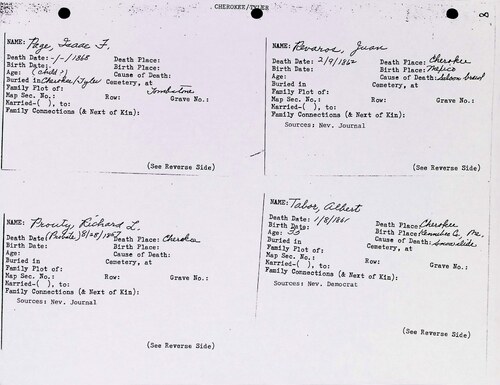 CHEROKEE/TYLER
8
NAME: Page, Isaac F.
Death Date: -/-/1868 Death Place:
Birth Date: Birth Place:
Age: (child?) Cause of Death:
Buried in Cherokee/Tyler Cemetery, at
Family Plot of: Tombstone
Map Sec. No.: Row: Grave No.:
Married-( ), to:
Family Connections (& Next of Kin):
(See Reverse Side)
NAME: Revaros, Juan
Death Date: 2/9/1862 Death Place: Cherokee
Birth Date: Birth Place: Mexico
Age: Cause of Death: Saloon brawl
Buried in Cemetery, at
Family Plot of:
Map Sec. No.: Row: Grave No.:
Married-( ), to:
Family Connections (& Next of Kin):
Sources: Nev. Journal
(See Reverse Side)
NAME: Prouty, Richard L.
Death Date: (Probate) 8/28/ Death Place: Cherokee
Birth Date: Birth Place:
Age: Cause of Death:
Buried in Cemetery, at
Family Plot of:
Map Sec. No.: Row: Grave No.:
Married-( ), to:
Family Connections (& Next of Kin):
Sources: Nev. Journal
(See Reverse Side)
NAME: Tabor, Albert
Death Date: 1/8/1861 Death Place: Cherokee
Birth Date: Birth Place: Kennebec Co, Me.
Age: 30 Cause of Death: snowslide
Buried in Cemetery, at
Family Plot of:
Map Sec. No.: Row: Grave No.:
Married-( ), to:
Family Connections (& Next of Kin):
Sources: Nev. Democrat
(See Reverse Side)